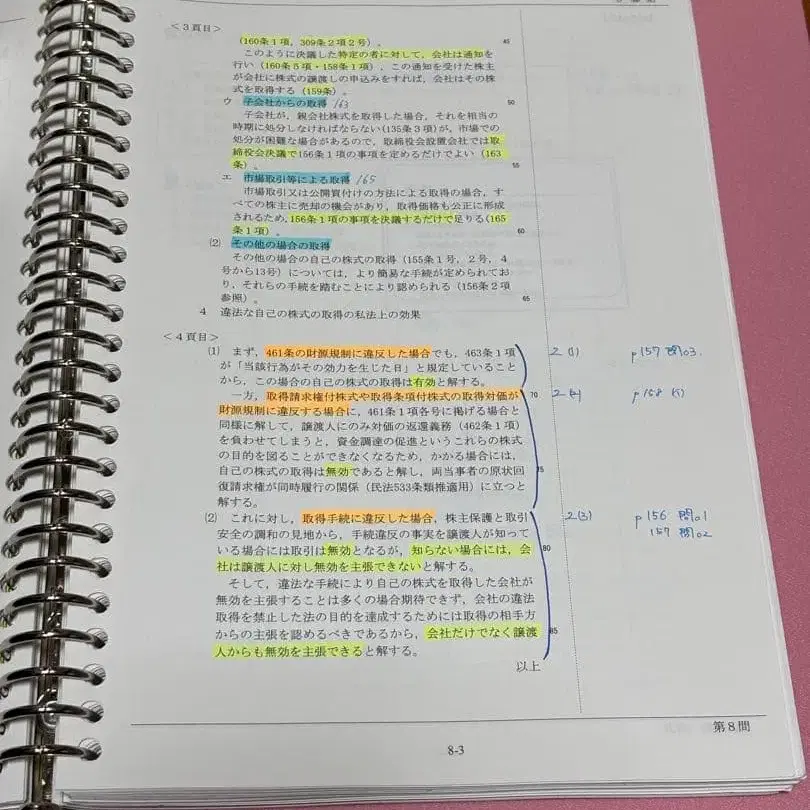 <3頁目>
(160条1項, 309条2項2号)。
45
このように決議した特定の者に対して, 会社は通知を
行い (160条5項・158条1項), この通知を受けた株主
が会社に株式の譲渡しの申込みをすれば, 会社はその株
式を取得する (159条)。
ウ 子会社からの取得 163
50
子会社が, 親会社株式を取得した場合, それを相当の
時期に処分しなければならない(135条3項)が, 市場での
処分が困難な場合があるので, 取締役会設置会社では取
締役会決議で156条1項の事項を定めるだけでよい (163
条)。
55
エ 市場取引等による取得 165
市場取引又は公開買付けの方法による取得の場合, す
べての株主に売却の機会があり, 取得価格も公正に形成
されるため, 156条1項の事項を決議するだけで足りる(165
条1項)。
60
(2) その他の場合の取得
その他の場合の自己の株式の取得 (155条1号, 2号, 4
号から13号) については, より簡易な手続が定められてお
り, それらの手続を踏むことにより認められる (156条2項
参照)。
65
4 違法な自己の株式の取得の私法上の効果
<4頁目>
(1) まず, 461条の財源規制に違反した場合でも, 463条1項
が「当該行為がその効力を生じた日」と規定していること
から, この場合の自己の株式の取得は有効と解する。
2 (1) p157 問03.
一方, 取得請求権付株式や取得条項付株式の取得対価が
70
財源規制に違反する場合に, 461条1項各号に掲げる場合と
同様に解して, 譲渡人にのみ対価の返還義務 (462条1項)
を負わせてしまうと, 資金調達の促進というこれらの株式
の目的を図ることができなくなるため, かかる場合には,
自己の株式の取得は無効であると解し, 両当事者の原状回
75
復請求権が同時履行の関係 (民法533条類推適用) に立つと
解する。
p158
(2) これに対し, 取得手続に違反した場合, 株主保護と取引
安全の調和の見地から, 手続違反の事実を譲渡人が知って
いる場合には取引は無効となるが, 知らない場合には, 会
80
社は譲渡人に対し無効を主張できないと解する。
2(3) p156 問01
157 問02
そして, 違法な手続により自己の株式を取得した会社が
無効を主張することは多くの場合期待できず, 会社の違法
取得を禁止した法の目的を達成するためには取得の相手方
からの主張を認めるべきであるから, 会社だけでなく譲渡
85
人からも無効を主張できると解する。
以上
第8問
8-3